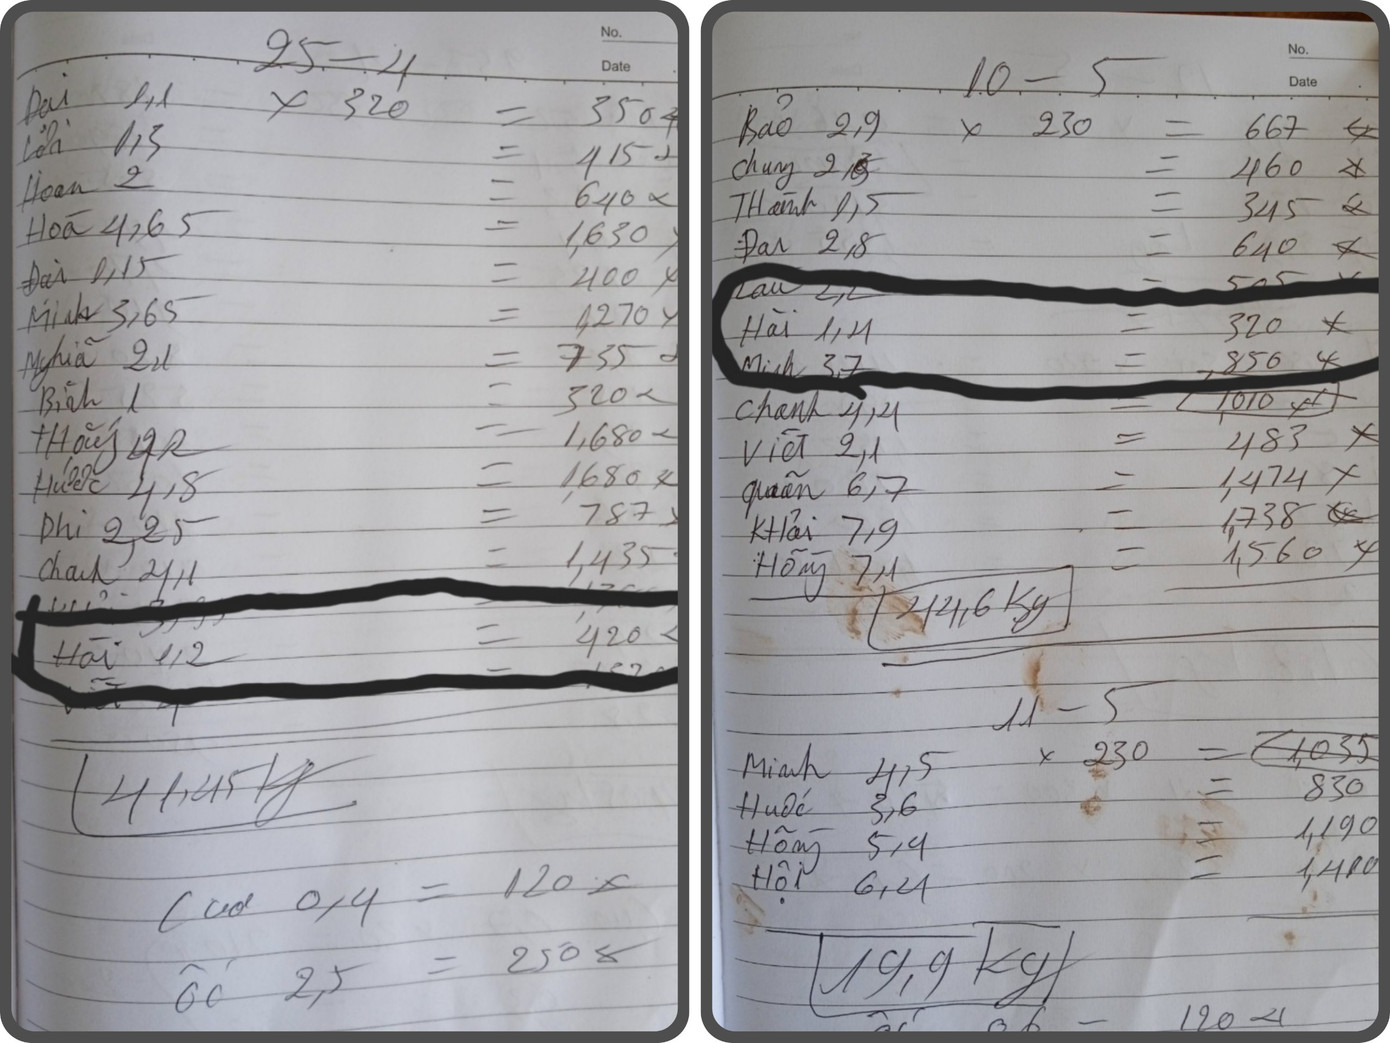 No.
Date
25-4
Đai 1,1 x 320 = 350
Lời 1,3 = 415
Hoan 2 = 640
Hoā 4,65 = 1,630
Đại 1,15 = 400 x
Minh 3,65 = 1,270
Nghiã 2,1 = 735
Bình 1 = 320
= 1,680
Hước 4,8 = 1,680 x
Phi 2,25 = 787
Chanh 4,1 = 1,435
Hải 1,2 = 420
41,45 kg
Cua 0,4 = 120 x
ốc 2,5 = 250 x
No.
Date
10 - 5
Bảo 2,9 x 230 = 667 x
Chung = 460 x
THành 1,5 = 345 x
Đar 2,8 = 640 x
505
Hải 1,4 = 320 x
Minh 3,7 = 850 x
Chanh 4,4 = 1010 x
Viết 2,1 = 483 x
quân 6,7 = 1,474 x
KHải 7,9 = 1,738
Hồng 7,1 = 1,560 x
44,6 Kg
11 - 5
Minh 4,5 x 230 = 1,035
Hước 3,6 = 830
Hồng 5,4 = 1,190
Hội 6,4 =
19,9 kg
120